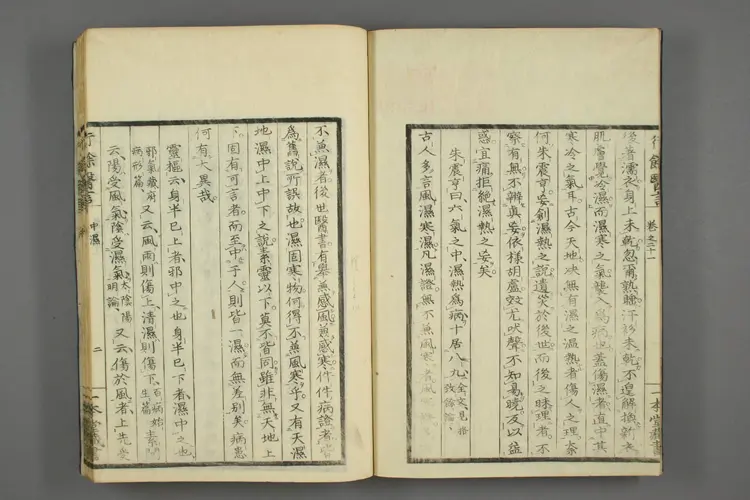 後着濡衣身上未乾忽爾熟睡汗衫未乾不遑解換新衣
肌膚覺冷濕而濕寒之氣襲入為病也蓋傷濕者直中其
寒冷之氣耳古今天地決無有濕之温熱者傷人之理奈
何朱震亨妄創濕熱之說遺災於後世而後之昧理者不
察有無不辨真妄依様胡盧效尤吠聲不知曷曉反以益
惑宜痛拒絕濕熱之妄矣
朱震亨曰六氣之中濕熱爲病十居八九
古人多言風濕寒濕凡濕證無不兼風寒者風寒
不兼濕者後世醫書有舉兼感風兼感寒件件病證者皆
爲舊說所誤故也濕固寒物何得不兼風寒乎又有天濕
地濕中上中下之說素靈以下莫不皆同雖非無天地上
下固有可言者而至中于人則皆一濕而無差別矣病患
何有大異哉
靈樞云身半已上者邪中之也身半已下者濕中之也
邪氣藏府病形篇 又云風雨則傷上清濕則傷下百病始生篇 素問
云陽受風氣陰受濕氣太陰陽明論 又云傷於風者上先受
行餘醫言
卷之二十一
一本堂藏書
行餘醫言
中濕
二
一本堂藏書